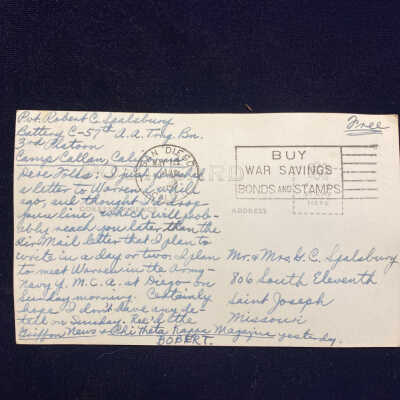 Pvt. Robert C. Spalsbury
Battery C-57th A.A. Trng. Bn.
3rd Platoon
Camp Callan, Calif.
Dear Folks: I just
a letter to Warren a while
ago, and thought I'd drop
you a line, which will prob-
ably reach you later than the
Air Mail letter that I plan to
write in a day or two. I plan
to meet Warren in the Army-
Navy Y.M.C.A. at Diego on
Sunday morning. Certainly
hope I don't have any de-
tail on Sunday. Rec'd the
Griffon News & Chi Theta Kappa Magazine yesterday.
BOBERT.
Free
SAN DIEGO
BUY
WAR SAVINGS
BONDS AND STAMPS
HERE
ADDRESS
Mr. & Mrs. G. C. Spalsbury
806 South Eleventh
Saint Joseph
Missouri